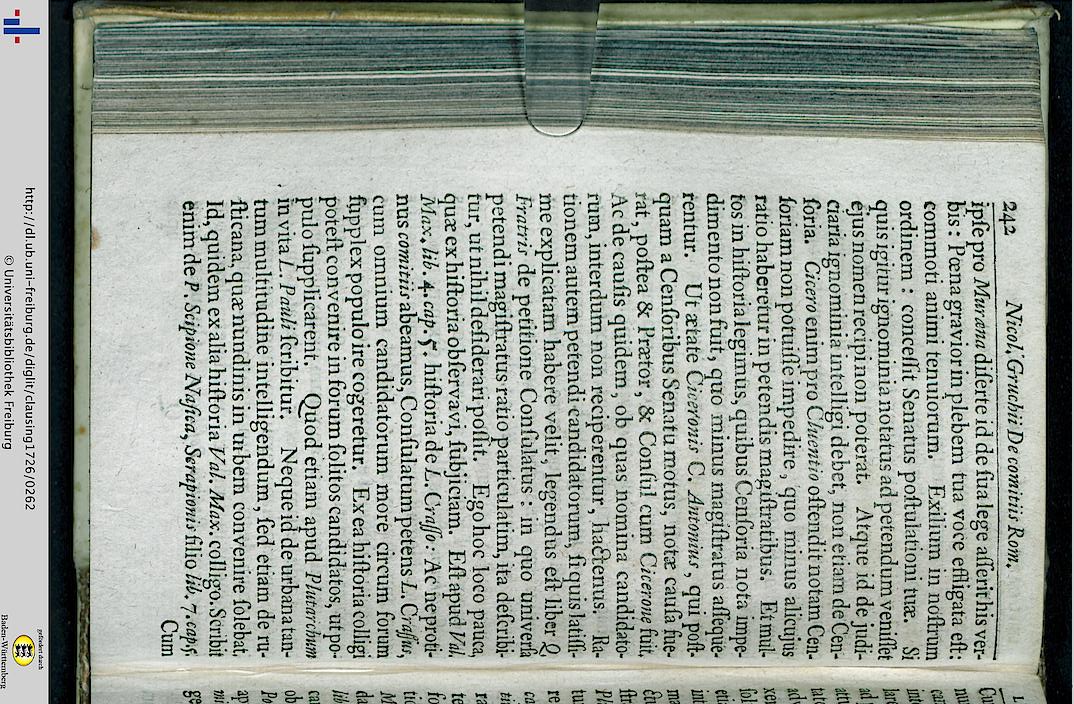 242 Nicol. Gruchii De comitiis Rom.
ipſe pro Muræna diſerte id de ſua lege aſſerit his ver-
bis: Pœna gravior in plebem tua voce efflagitata eſt:
commoti animi tenuiorum. Exilium in noſtrum
ordinem: conceſſit Senatus poſtulationi tuæ. Si
quis igitur ignominia notatus ad petendum veniſſet
ejus nomen recipi non poterat. Atque id de judi-
ciaria ignominia intelligi debet, non etiam de Cen-
ſoria. Cicero enim pro Cluentio oſtendit notam Cen-
ſoriam non potuiſſe impedire, quo minus alicujus
ratio haberetur in petendis magiſtratibus. Et mul-
tos in hiſtoria legimus, quibus Cenſoria nota impe-
dimento non fuit, quo minus magiſtratus aſſeque-
rentur. Ut ætate Ciceronis C. Antonius, qui poſt-
quam a Cenſoribus Senatu motus, notæ cauſa fue-
rat, poſtea & Prætor, & Conſul cum Cicerone fuit.
Ac de cauſis quidem, ob quas nomina candidato-
rum, interdum non reciperentur, hactenus. Ra-
tionem autem petendi candidatorum, ſi quis latiſſi-
me explicatam habere velit, legendus eſt liber Q.
Fratris de petitione Conſulatus: in quo univerſa
petendi magiſtratus ratio particulatim, ita deſcribi-
tur, ut nihil deſiderari poſſit. Ego hoc loco pauca,
quæ ex hiſtoria obſervavi, ſubjiciam. Eſt apud Val.
Max. lib. 4. cap. 5. hiſtoria de L. Craſſo: Ac ne proti-
nus comitiis abeamus, Conſulatum petens L. Craſſus,
cum omnium candidatorum more circum forum
ſupplex populo ire cogeretur. Ex ea hiſtoria colligi
poteſt convenire in forum ſolitos candidatos, ut po-
pulo ſupplicarent. Quod etiam apud Plutarchum
in vita L. Pauli ſcribitur. Neque id de urbana tan-
tum multitudine intelligendum, ſed etiam de ru-
ſticana, quæ nundinis in urbem convenire ſolebat.
Id, quidem ex alia hiſtoria Val. Max. colligo. Scribit
enim de P. Scipione Naſica, Serapionis filio lib. 7. cap. 5.
Cum
http://dl.ub.uni-freiburg.de/diglit/clausing1726/0262
© Universitätsbibliothek Freiburg
gefördert durch
Baden-Württemberg